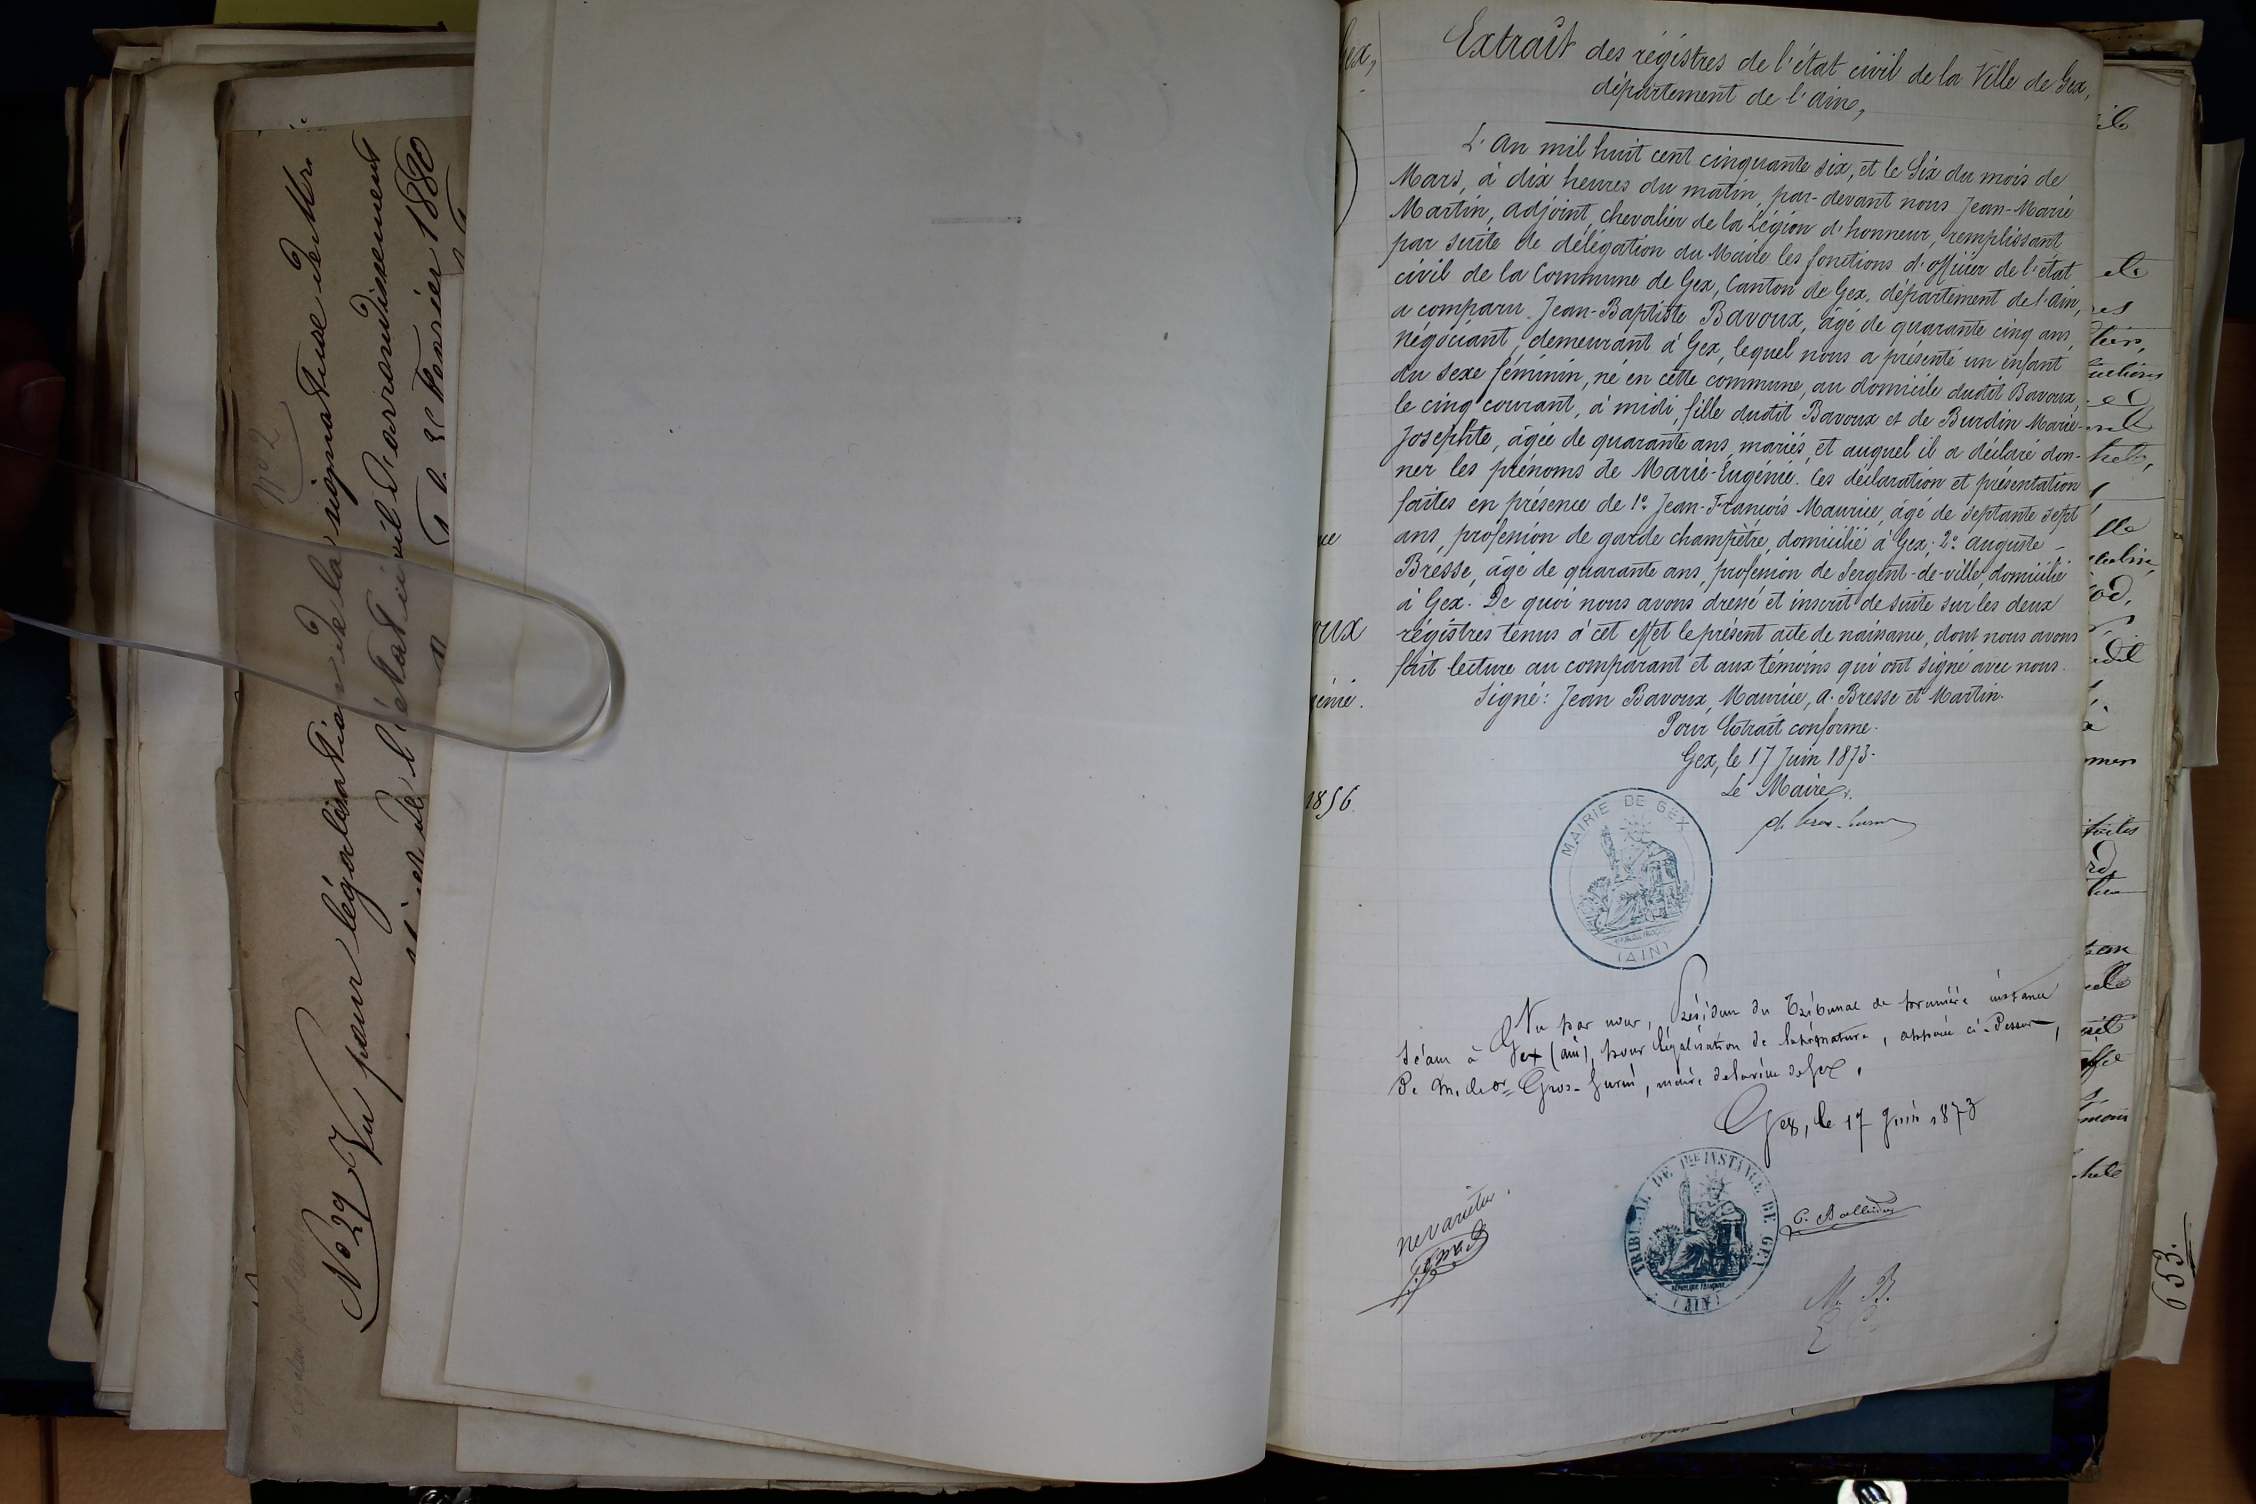 No 2
No 29 Vu pour légalisation de la signature de Mr.
de l'état civil d'arrondissement
Février 1880
Gex,
oux
énie.
1856.
Extrait des régistres de l'état civil de la Ville de Gex,
département de l'Ain,
L'An mil huit cent cinquante six, et le Six du mois de
Mars, à dix heures du matin, par-devant nous Jean-Marie
Martin, adjoint, chevalier de la Légion d'honneur, remplissant
par suite de délégation du Maire les fonctions d'officier de l'état
civil de la Commune de Gex, Canton de Gex, département de l'ain,
a comparu Jean-Baptiste Bavoux, âgé de quarante cinq ans,
négociant, demeurant à Gex, lequel nous a présenté un enfant
du sexe féminin, né en cette commune, au domicile dudit Bavoux,
le cinq courant, à midi, fille dudit Bavoux et de Burdin Marie-
Josephte, âgée de quarante ans, mariés, et auquel il a déclaré don-
ner les prénoms de Marie-Eugénie. Ces déclaration et présentation
faites en présence de 1º Jean-François Maurice, âgé de septante sept
ans, profession de garde champêtre, domicilié à Gex; 2º auguste
Bresse, âgé de quarante ans, profession de Sergent-de-ville, domicilié
à Gex. De quoi nous avons dressé et inscrit de suite sur les deux
régistres tenus à cet effet le présent acte de naissance, dont nous avons
fait lecture au comparant et aux témoins qui ont signé avec nous.
Signé: Jean Bavoux, Maurice, A. Bresse et Martin.
Pour Extrait conforme.
Gex, le 17 Juin 1873.
Le Maire
MAIRIE DE GEX
(AIN)
Vu par nous, Président du Tribunal de première instance
séant à Gex (ain), pour légalisation de la signature, apposée ci-dessus,
de M. le Dr Gros-Gurin, maire de la ville de Gex.
Gex, le 17 Juin 1873
ne varietur
TRIBUNAL DE 1RE INSTANCE DE GEX
(AIN)
M. B.
653.